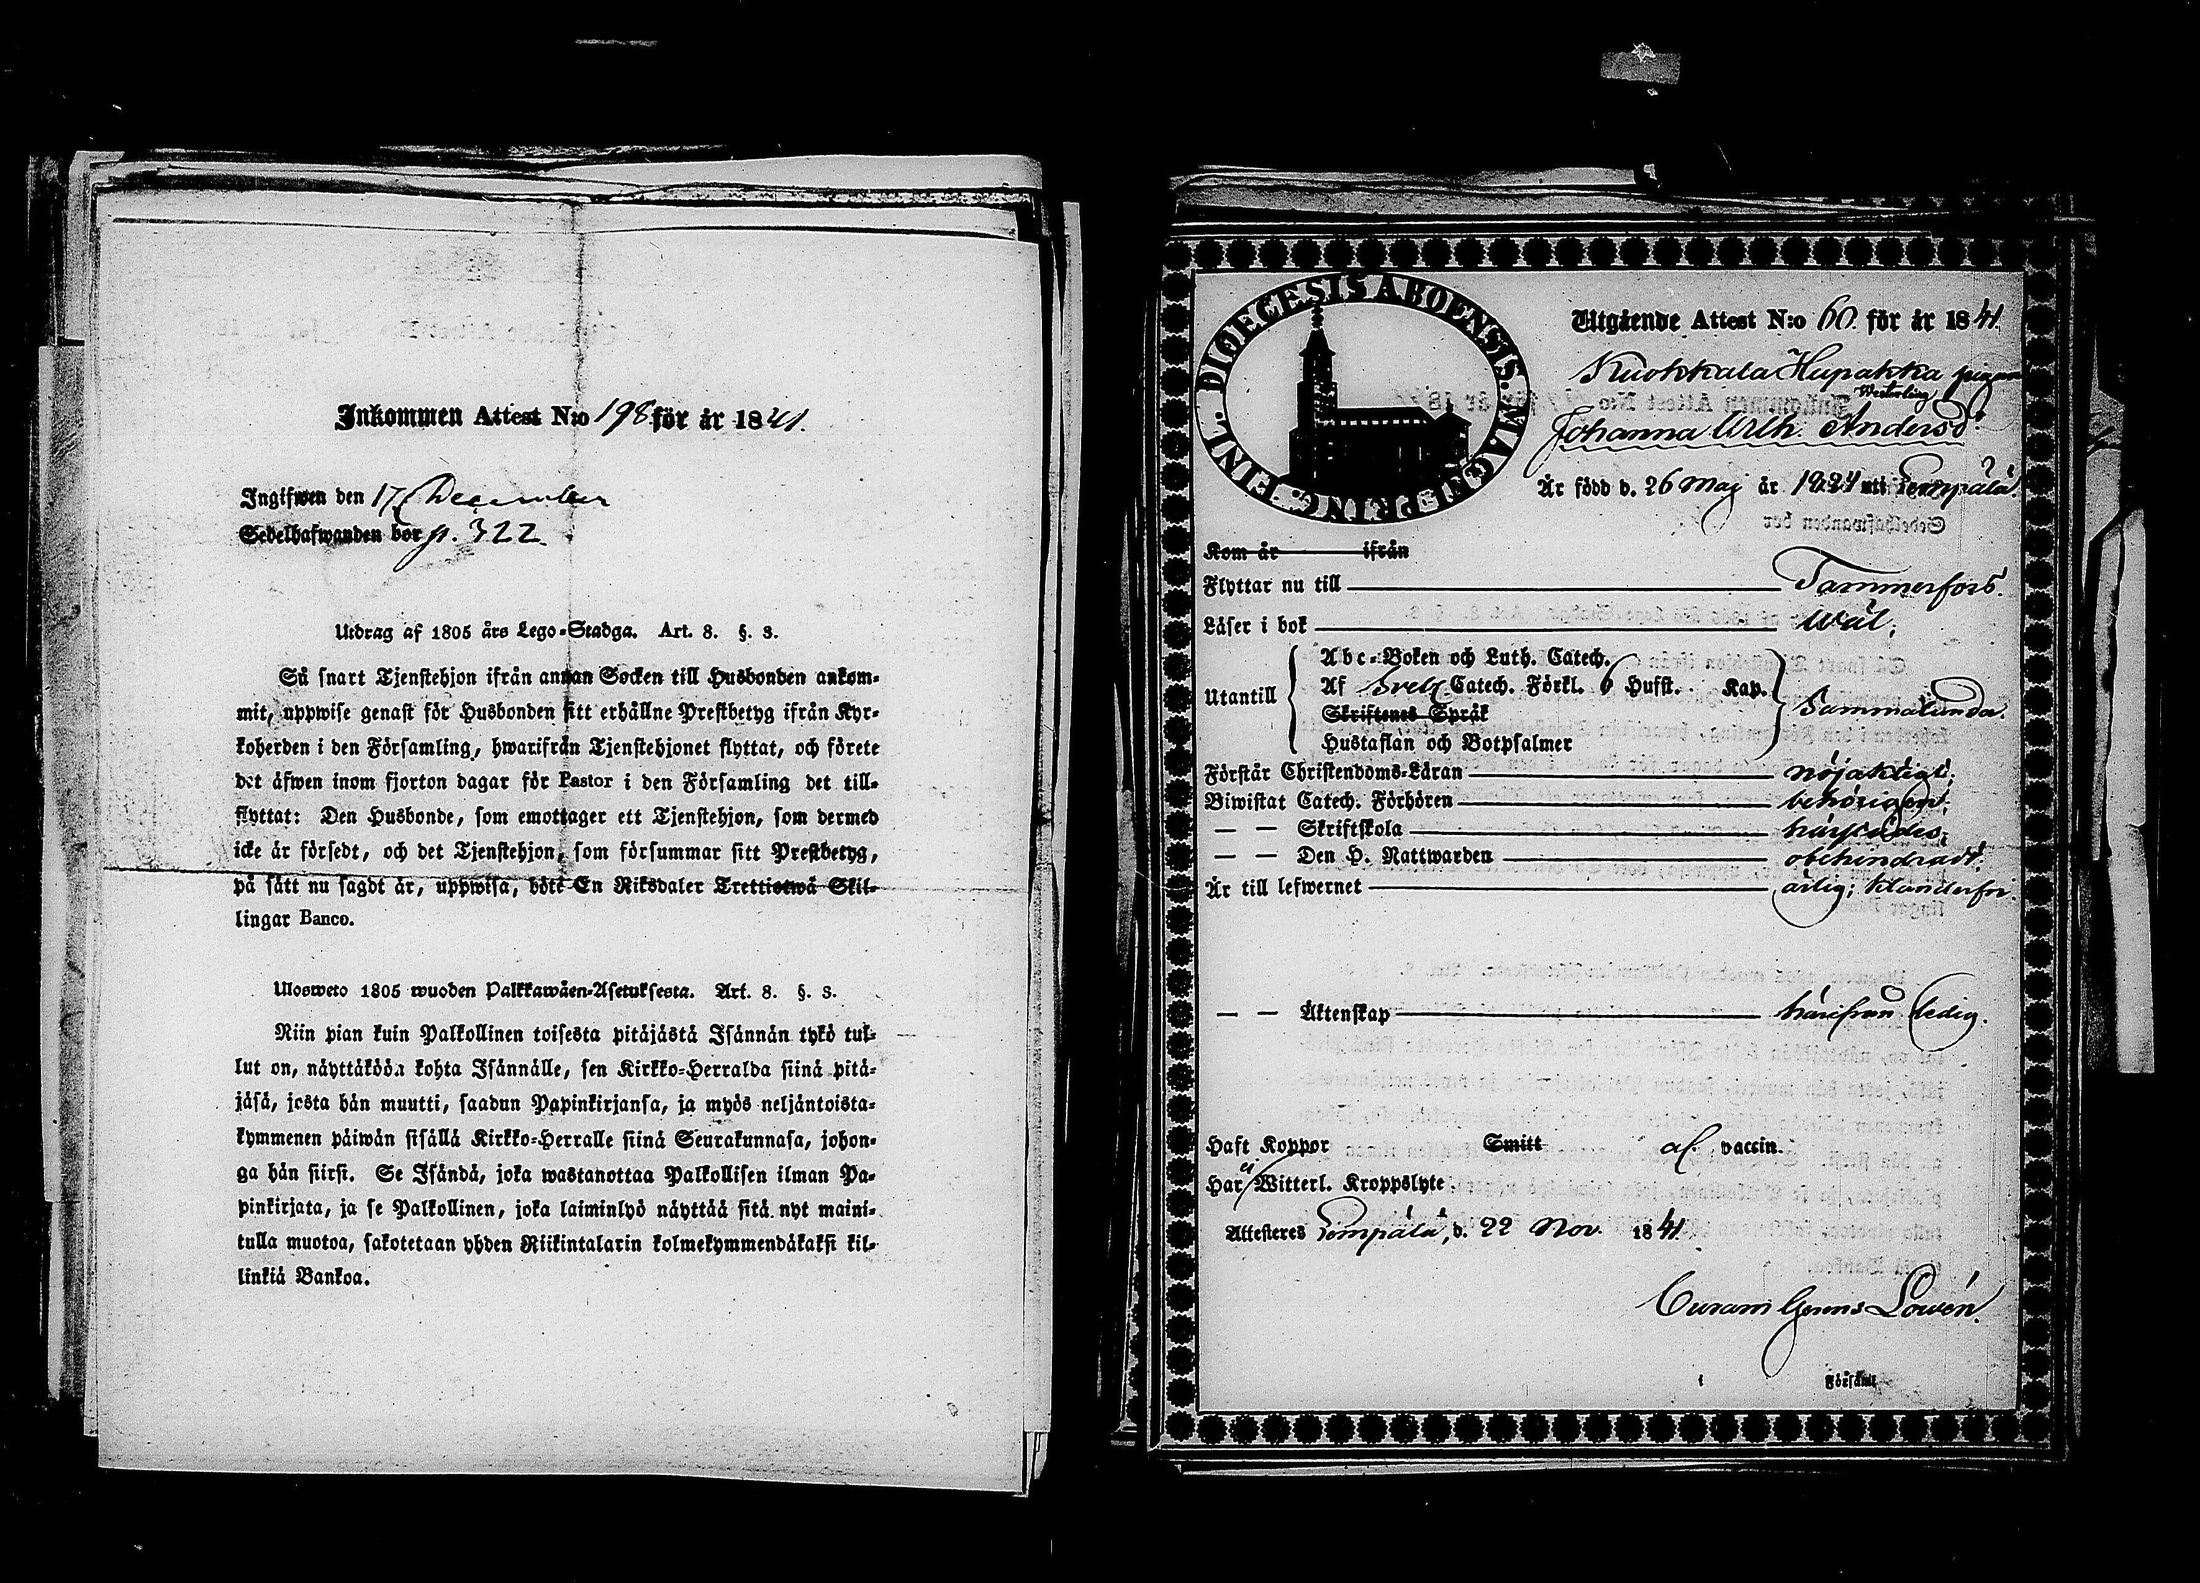 Inkommen Attest N:o 198 för år 1841.
Ingifwen den 17 December
Sedelhafwanden bor p. 322.
Utdrag af 1805 års Lego-Stadga. Art. 8. §. 3.
Så snart Tjenstehjon ifrån annan Socken till Husbonden ankom-
mit, uppwise genast för Husbonden sitt erhållne Prestbetyg ifrån Kyr-
koherden i den Församling, hwarifrån Tjenstehjonet flyttat, och förete
det äfwen inom fjorton dagar för Pastor i den Församling det till-
flyttat: Den Husbonde, som emottager ett Tjenstehjon, som dermed
icke är försedt, och det Tjenstehjon, som försummar sitt Prestbetyg,
på sätt nu sagdt är, uppwisa, böte En Riksdaler Trettiotwå Skil-
lingar Banco.
Ulosweto 1805 wuoden Palkkawäen-Asetuksesta. Art. 8. §. 3.
Niin pian kuin Palkollinen toisesta pitäjästä Isännän tykö tul-
lut on, näyttäköön kohta Isännälle, sen Kirkko-Herralda siinä pitä-
jäsä, josta hän muutti, saadun Papinkirjansa, ja myös neljäntoista-
kymmenen päiwän sisällä Kirkko-Herralle siinä Seurakunnasa, johon-
ga hän siirsi. Se Isändä, joka wastanottaa Palkollisen ilman Pa-
pinkirjata, ja se Palkollinen, joka laiminlyö näyttää sitä nyt maini-
tulla muotoa, sakotetaan yhden Riikintalarin kolmekymmendäkaksi kil-
linkiä Bankoa.
FINL. DIOECESIS ABOENSIS. MAGNI PRING.
Utgående Attest N:o 60. för år 1841.
Kuokkala Hupakka pigan
Westerling
Johanna Ulh. Andersd:
Är född d. 26 Maj år 1824 uti Lempälä.
Kom år ifrån
Flyttar nu till Tammerfors.
Läser i bok wäl,
Abc-Boken och Luth. Catech.
Utantill Af Sveb. Catech. Förkl. 6 Hufst. Kap. Sammalunda.
Skriftenes Språk
Hustaflan och Botpsalmer
Förstår Christendoms-Läran nöjaktigt;
Biwistat Catech. Förhören behörigen;
— — Skriftskola härstädes;
— — Den H. Nattwarden obehindradt.
Är till lefwernet ärlig; klanderfri.
— — Äktenskap härifrån ledig.
Haft Koppor Smitt af vaccin.
ej
Har Witterl. Kroppslyte.
Attesteres Lempälä, d. 22 Nov. 1841.
Curam Gerens Lowén.
i Församl.